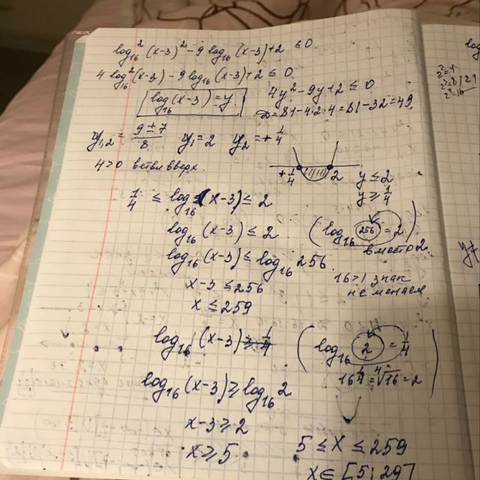 log₁₆²(x-3)² - 9 log₁₆(x-3) + 2 ≤ 0
4 log₁₆²(x-3) - 9 log₁₆(x-3) + 2 ≤ 0
log₁₆(x-3) = y
4y² - 9y + 2 ≤ 0
D = 81 - 4·2·4 = 81 - 32 = 49
y₁,₂ = (9 ± 7)/8   y₁ = 2   y₂ = + 1/4
4 > 0 ветви вверх
+ 1/4   2
y ≤ 2
y ≥ 1/4
1/4 ≤ log₁₆(x-3) ≤ 2
log₁₆(x-3) ≤ 2
(log₁₆ 256 = 2)
вместо 2
log₁₆(x-3) ≤ log₁₆ 256
16 > 1 знак
не меняем
x-3 ≤ 256
x ≤ 259
log₁₆(x-3) ≥ 1/4
(log₁₆ 2 = 1/4)
16^¼ = ⁴√16 = 2
log₁₆(x-3) ≥ log₁₆ 2
x-3 ≥ 2
x ≥ 5
5 ≤ x ≤ 259
x ∈ [5; 29]